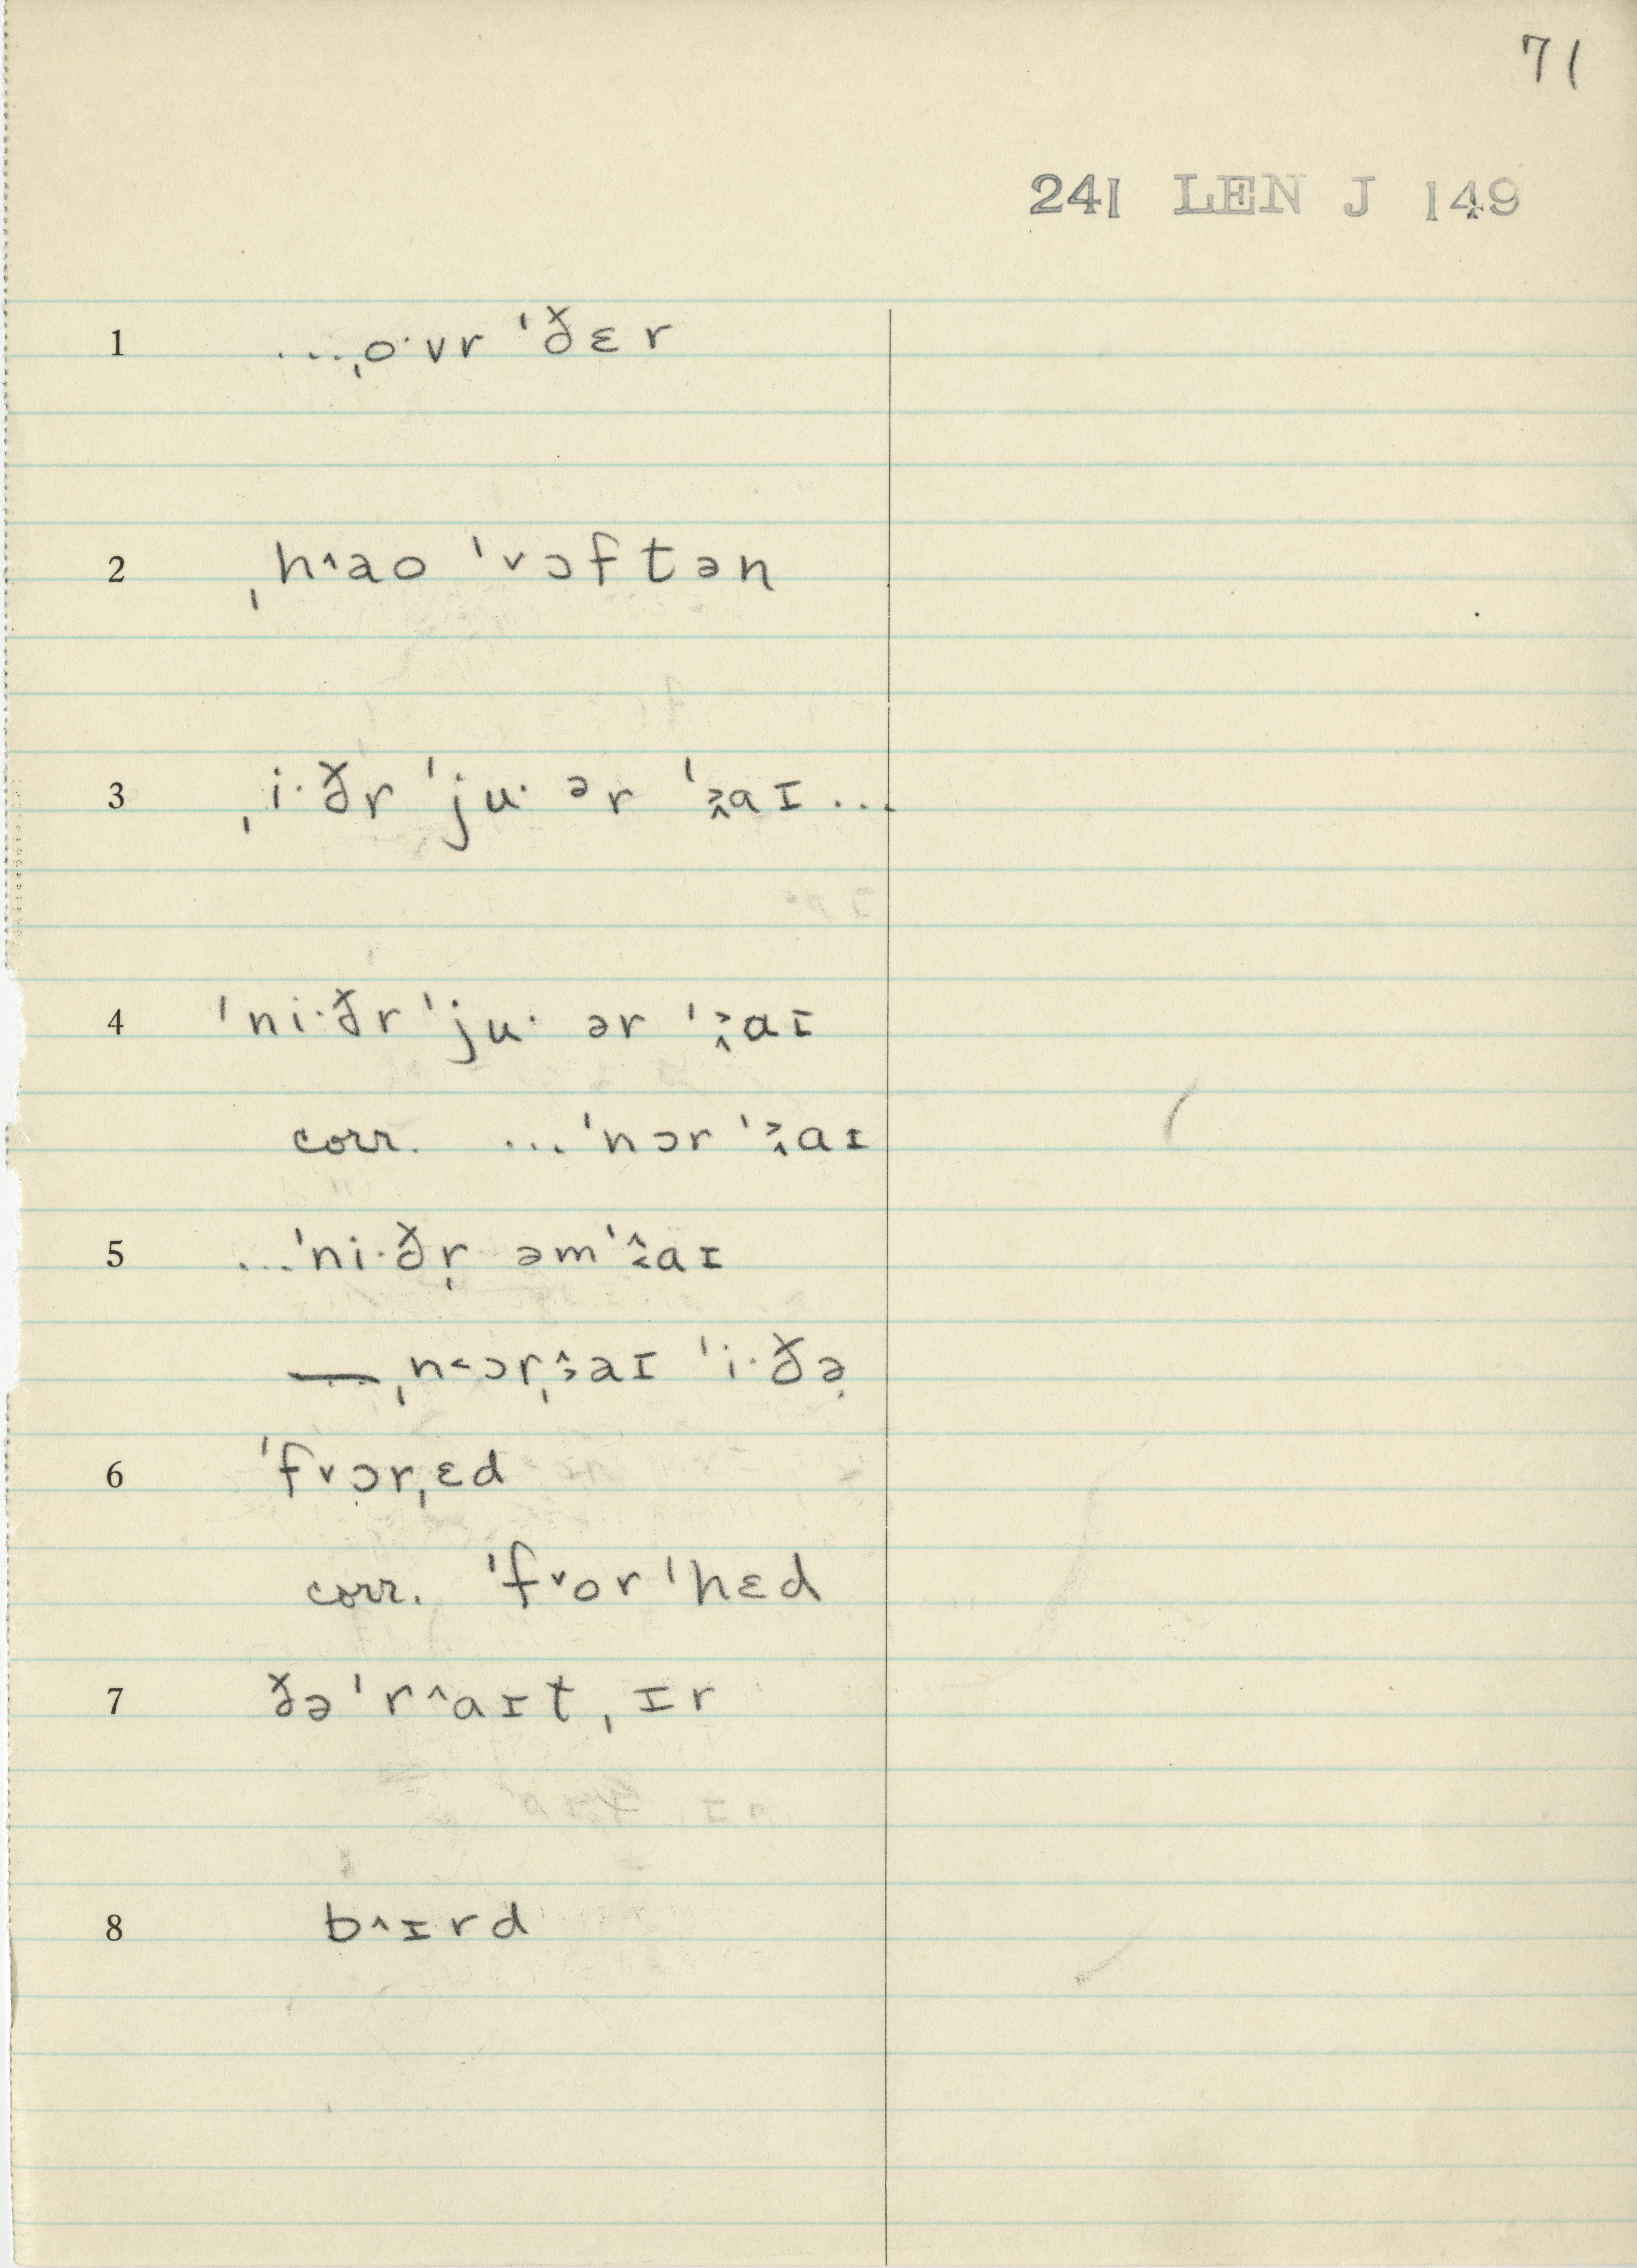 71
241 LEN J 149
1 ...ˌo·vr ˈðɛr
2 ˌh^ao ˈ˅ɔftən
3 ˌi·ðr ˈju· ər ˈaɪ...
4 ˈni·ðr ˈju· ər ˈaɪ
corr. ...ˈnɔr ˈaɪ
5 ...ˈni·ðr̩ əmˈaɪ
— ˌn˂ɔrˌaɪ ˈi·ðə̣
6 ˈf˅ɔrˌɛd
corr. ˈf˅orˈhɛd
7 ðəˈr^aɪtˌɪr
8 b^ɪrd